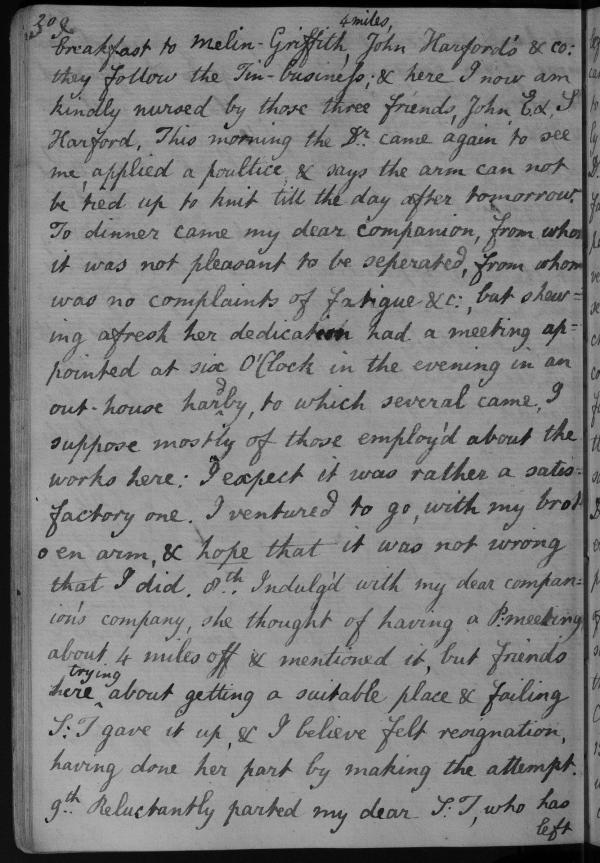 302
4 miles,
breakfast to Melin-Griffith, John Harford's & co:
they follow the Tin-business; & here I now am
kindly nursed by those three friends, John, Ed, S
Harford. This morning the Dr. came again to see
me, applied a poultice, & says the arm can not
be tied up to knit till the day after tomorrow.
To dinner came my dear companion, from whom
it was not pleasant to be seperated, from whom
was no complaints of fatigue &c:, but shew-
ing afresh her dedication had a meeting ap=
pointed at six O'Clock in the evening in an
out-house hardby, to which several came, I
suppose mostly of those employ'd about the
works here: I expect it was rather a satis=
factory one. I ventured to go, with my brok
en arm, & hope that it was not wrong
that I did. 8th. Indulg'd with my dear compan=
ion's company, she thought of having a P:meeting
about 4 miles off & mentioned it, but friends
trying
here about getting a suitable place & failing
S:T gave it up, & I believe felt resignation,
having done her part by making the attempt.
9th. Reluctantly parted my dear S:T, who has
left